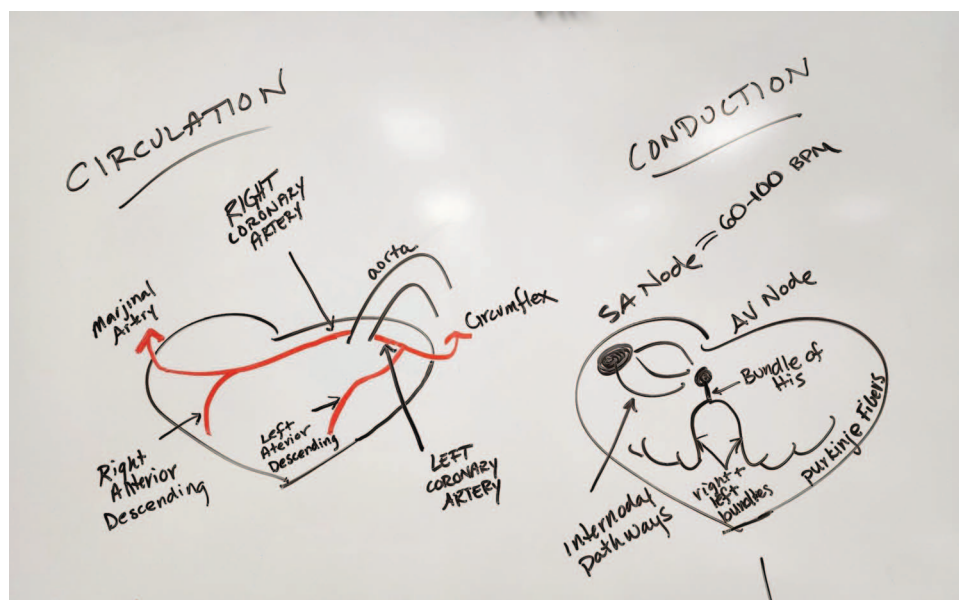 CIRCULATION
RIGHT
CORONARY
ARTERY
aorta
Marjinal
Artery
Circumflex
Right
Anterior
Descending
Left
Aterior
Descending
LEFT
CORONARY
ARTERY
CONDUCTION
SA Node = 60-100 BPM
AV Node
Bundle of
His
Purkinje Fibers
right +
left
bundles
Internodal
pathways